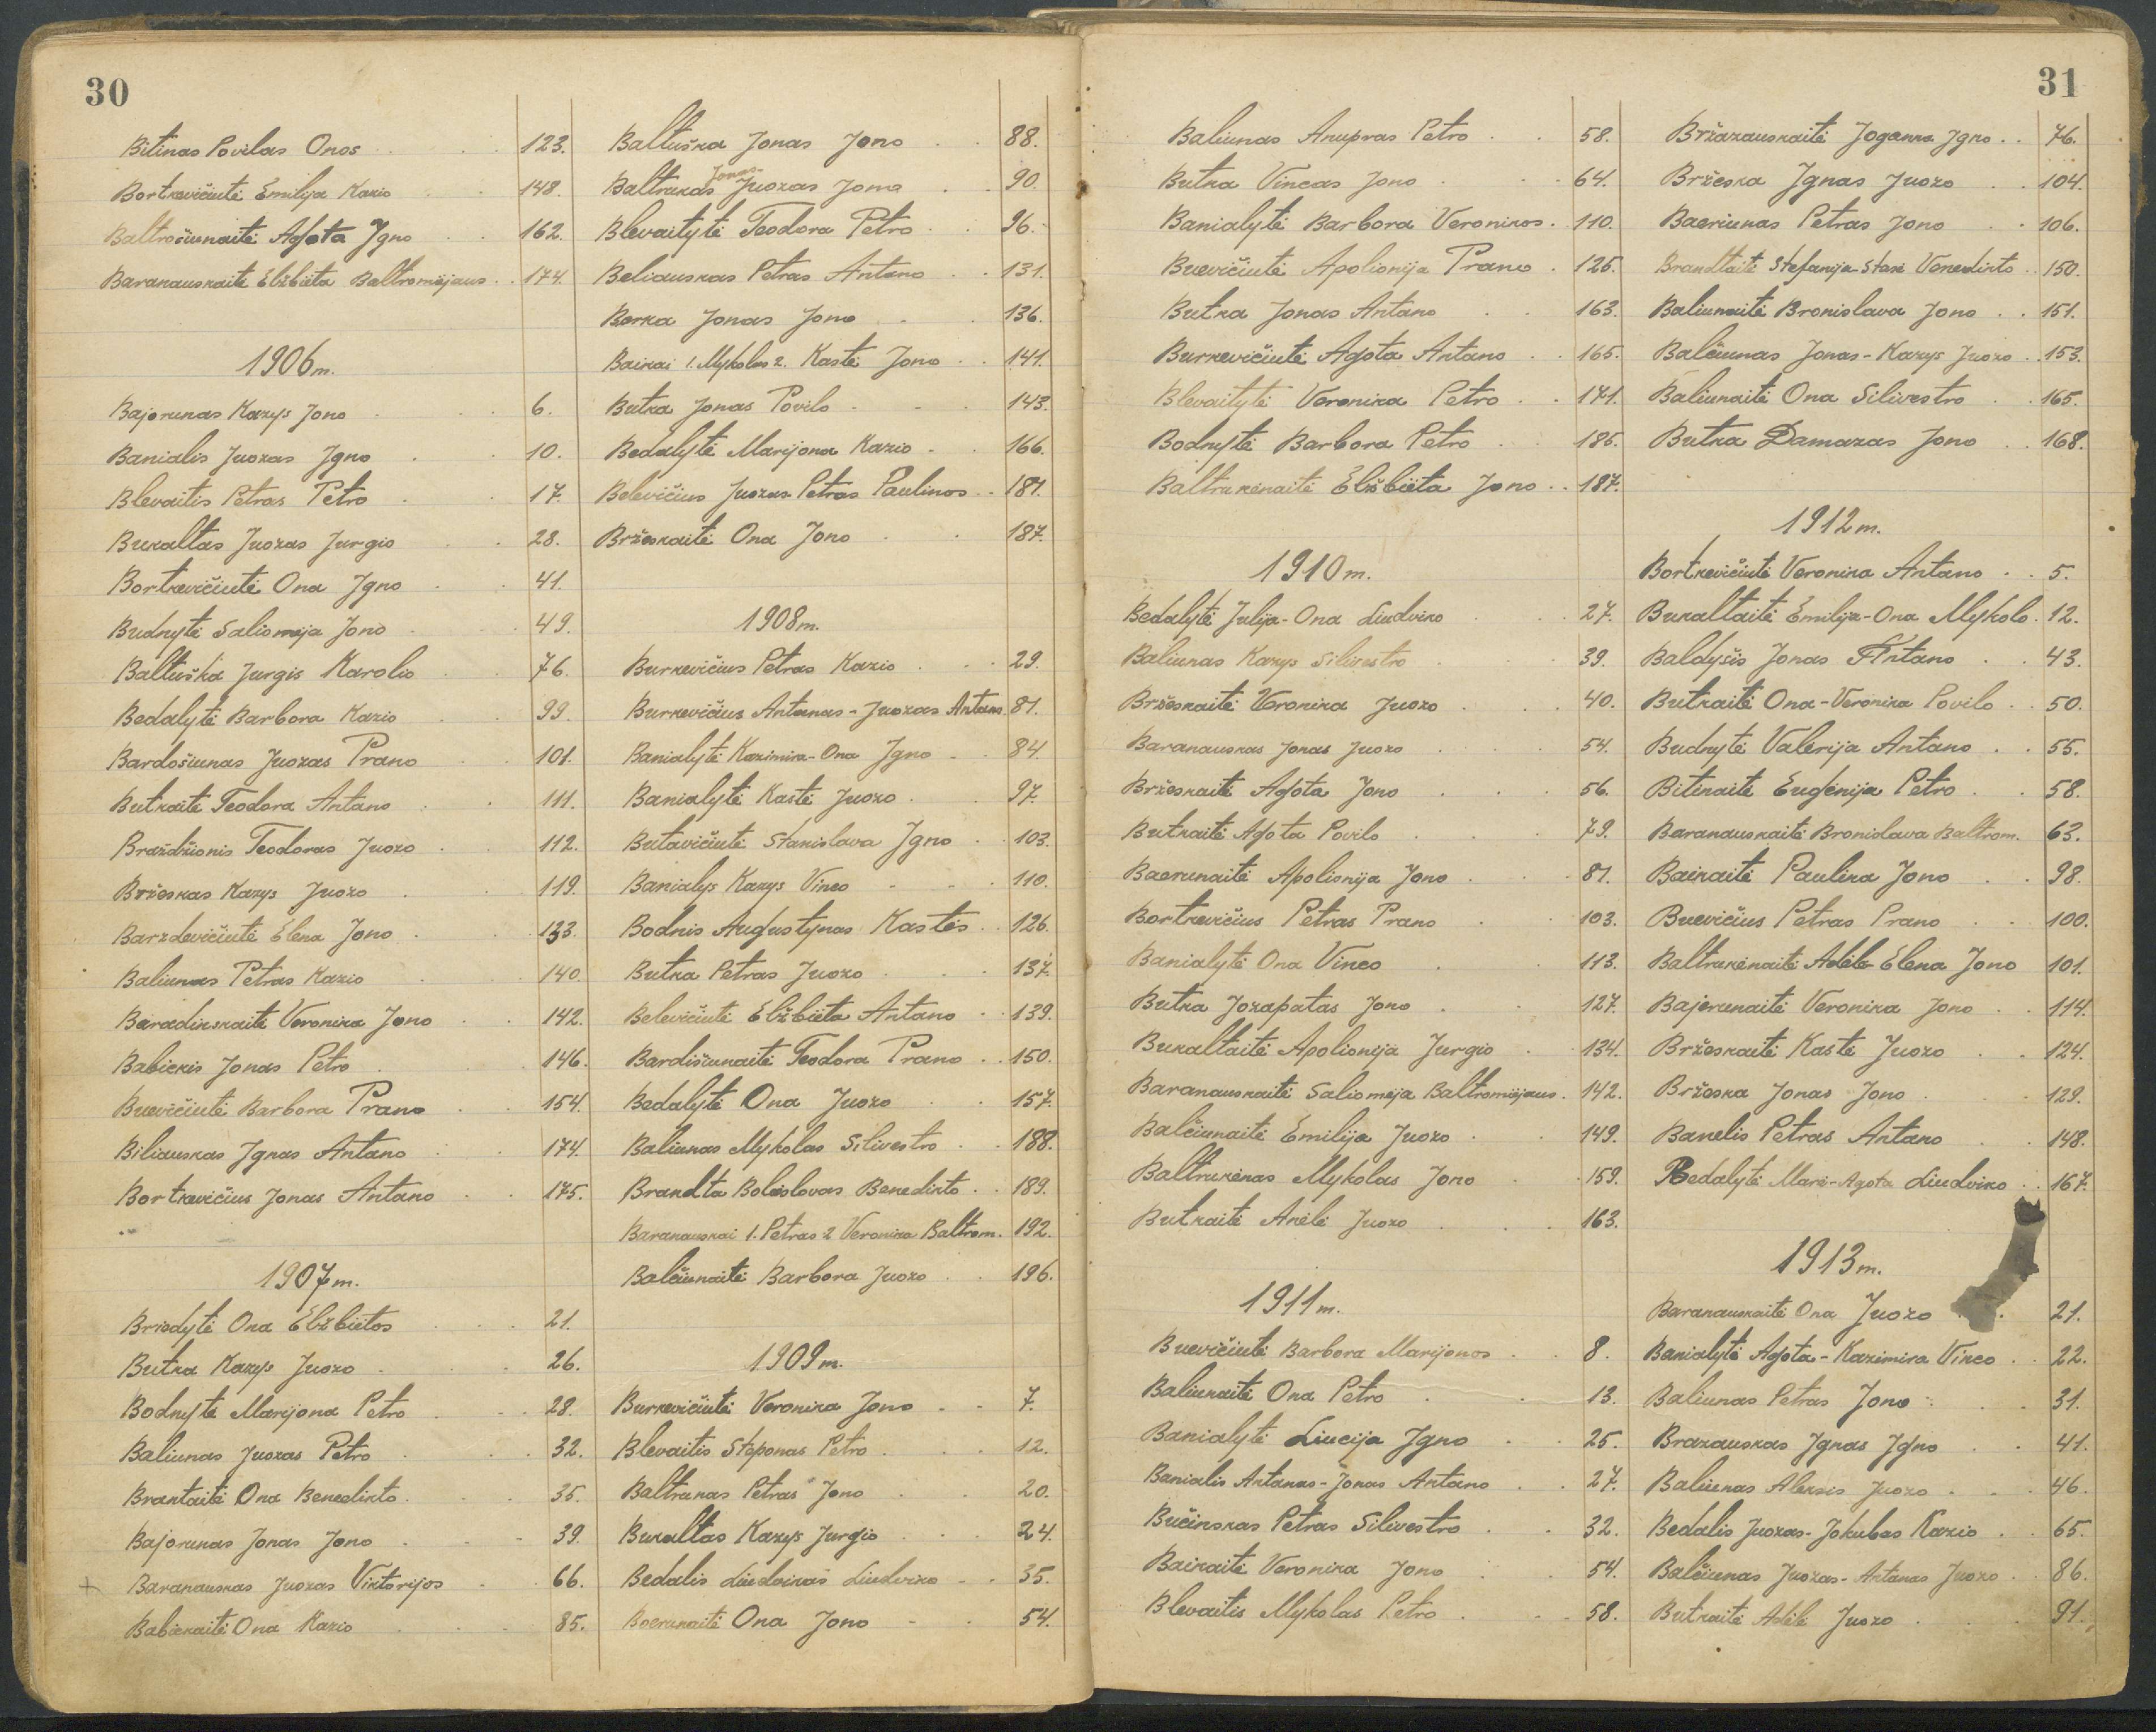 30
Bitinas Povilas Onos 123.
Bortkevičiutė Emilija Kazio 148.
Baltrošiunaitė Agota Igno 162.
Baranauskaitė Elžbieta Baltromėjaus 174.
1906 m.
Bajorunas Kazys Jono 6.
Banialis Juozas Igno 10.
Blevaitis Petras Petro 17.
Bukaltas Juozas Jurgio 28.
Bortkevičiutė Ona Igno 41.
Budrytė Saliomėja Jono 49.
Baltuška Jurgis Karolio 76.
Bedalytė Barbora Kazio 99.
Bardošiunas Juozas Prano 101.
Butkaitė Teodora Antano 111.
Braždžionis Teodoras Juozo 112.
Bržeskas Kazys Juozo 119.
Barzdevičiutė Elena Jono 133.
Baliunas Petras Kazio 140.
Baradinskaitė Veronika Jono 142.
Babickis Jonas Petro 146.
Buevičiutė Barbora Prano 154.
Biliauskas Ignas Antano 174.
Bortkevičius Jonas Antano 175.
1907 m.
Briedytė Ona Elžbietos 21.
Butka Kazys Juozo 26.
Bodnytė Marijona Petro 28.
Baliunas Juozas Petro 32.
Brantaitė Ona Benedikto 35.
Bajorunas Jonas Jono 39.
+ Baranauskas Juozas Viktorijos 66.
Babickaitė Ona Kazio 85.
Baltuška Jonas Jono 88.
Jonas
Baltrukas Juozas Jono 90.
Blevaitytė Teodora Petro 96.
Beliauskas Petras Antano 131.
Borka Jonas Jono 136.
Baikai 1. Mykolas 2. Kastė Jono 141.
Butka Jonas Povilo 143.
Bedalytė Marijona Kazio 166.
Belevičius Juozas Petras Paulinos 181.
Bržeskaitė Ona Jono 187.
1908 m.
Burkevičius Petras Kazio 29.
Burkevičius Antanas-Juozas Antano 81.
Banialytė Kazimira-Ona Igno 84.
Banialytė Kastė Juozo 97.
Butavičiutė Stanislava Igno 103.
Banialys Kazys Vinco 110.
Bodnis Augustynas Kastės 126.
Butka Petras Juozo 137.
Belevičiutė Elžbieta Antano 139.
Bardišiunaitė Teodora Prano 150.
Bedalytė Ona Juozo 157.
Baliunas Mykolas Silivestro 188.
Brandta Boleslovas Benedikto 189.
Baranauskai 1. Petras 2 Veronika Baltrom. 192.
Balčiunaitė Barbora Juozo 196.
1909 m.
Burkevičiutė Veronika Jono 7.
Blevaitis Steponas Petro 12.
Baltrukas Petras Jono 20.
Bukaltas Kazys Jurgio 24.
Bedalis Liudvikas Liudviko 35.
Baerunaitė Ona Jono 54.
31
Baliunas Anupras Petro 58.
Butka Vincas Jono 64.
Banialytė Barbora Veronikos 110.
Buevičiutė Apolionija Prano 125.
Butka Jonas Antano 163.
Burkevičiutė Agota Antano 165.
Blevaitytė Veronika Petro 171.
Bodnytė Barbora Petro 185.
Baltrukėnaitė Elžbieta Jono 187.
1910 m.
Bedalytė Julija-Ona Liudviko 27.
Baliunas Kazys Silivestro 39.
Bržeskaitė Veronika Juozo 40.
Baranauskas Jonas Juozo 54.
Bržeskaitė Agota Jono 56.
Butkaitė Agota Povilo 79.
Baerunaitė Apolionija Jono 81.
Bortkevičius Petras Prano 103.
Banialytė Ona Vinco 113.
Butka Jozapatas Jono 127.
Bukaltaitė Apolionija Jurgio 134.
Baranauskaitė Saliomėja Baltromėjaus 142.
Balčiunaitė Emilija Juozo 149.
Baltrukėnas Mykolas Jono 159.
Butkaitė Anėlė Juozo 163.
1911 m.
Buevičiutė Barbora Marijonos 8.
Baliunaitė Ona Petro 13.
Banialytė Liucija Igno 25.
Banialis Antanas-Jonas Antano 27.
Bučinskas Petras Silivestro 32.
Baikaitė Veronika Jono 54.
Blevaitis Mykolas Petro 58.
Bržazauskaitė Joganna Igno 76.
Bržeska Ignas Juozo 104.
Baeriunas Petras Jono 106.
Brandtaitė Stefanija-Stasė Venedikto 150.
Baliunaitė Bronislava Jono 151.
Balčiunas Jonas-Kazys Juozo 153.
Baliunaitė Ona Silivestro 165.
Butka Damazas Jono 168.
1912 m.
Bortkevičiutė Veronika Antano 5.
Bukaltaitė Emilija-Ona Mykolo 12.
Baldyšis Jonas Antano 43.
Butkaitė Ona-Veronika Povilo 50.
Budnytė Valerija Antano 55.
Bitinaitė Eugenija Petro 58.
Baranauskaitė Bronislava Baltrom. 63.
Baikaitė Paulina Jono 98.
Buevičius Petras Prano 100.
Baltrukėnaitė Adėlė-Elena Jono 101.
Bajerunaitė Veronika Jono 114.
Bržeskaitė Kastė Juozo 124.
Bržeska Jonas Jono 129.
Banelis Petras Antano 148.
Bedalytė Marė-Agota Liudviko 167.
1913 m.
Baranauskaitė Ona Juozo 21.
Banialytė Agota-Kazimira Vinco 22.
Baliunas Petras Jono 31.
Brazauskas Ignas Igno 41.
Baliunas Aleksis Juozo 46.
Bedalis Juozas-Jokubas Kazio 65.
Balčiunas Juozas-Antanas Juozo 86.
Butkaitė Adėlė Juozo 91.